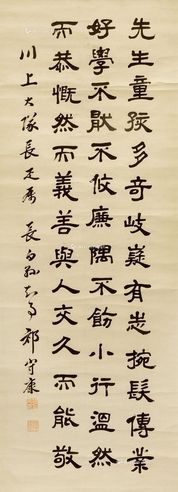 先生童孩多奇岐嶷有志捥髮傳業
好學不猒不攸廉隅不飭小行溫然
而恭慨然而義善與人交久而能敬
川上大隊長疋屬 長白 祁守康